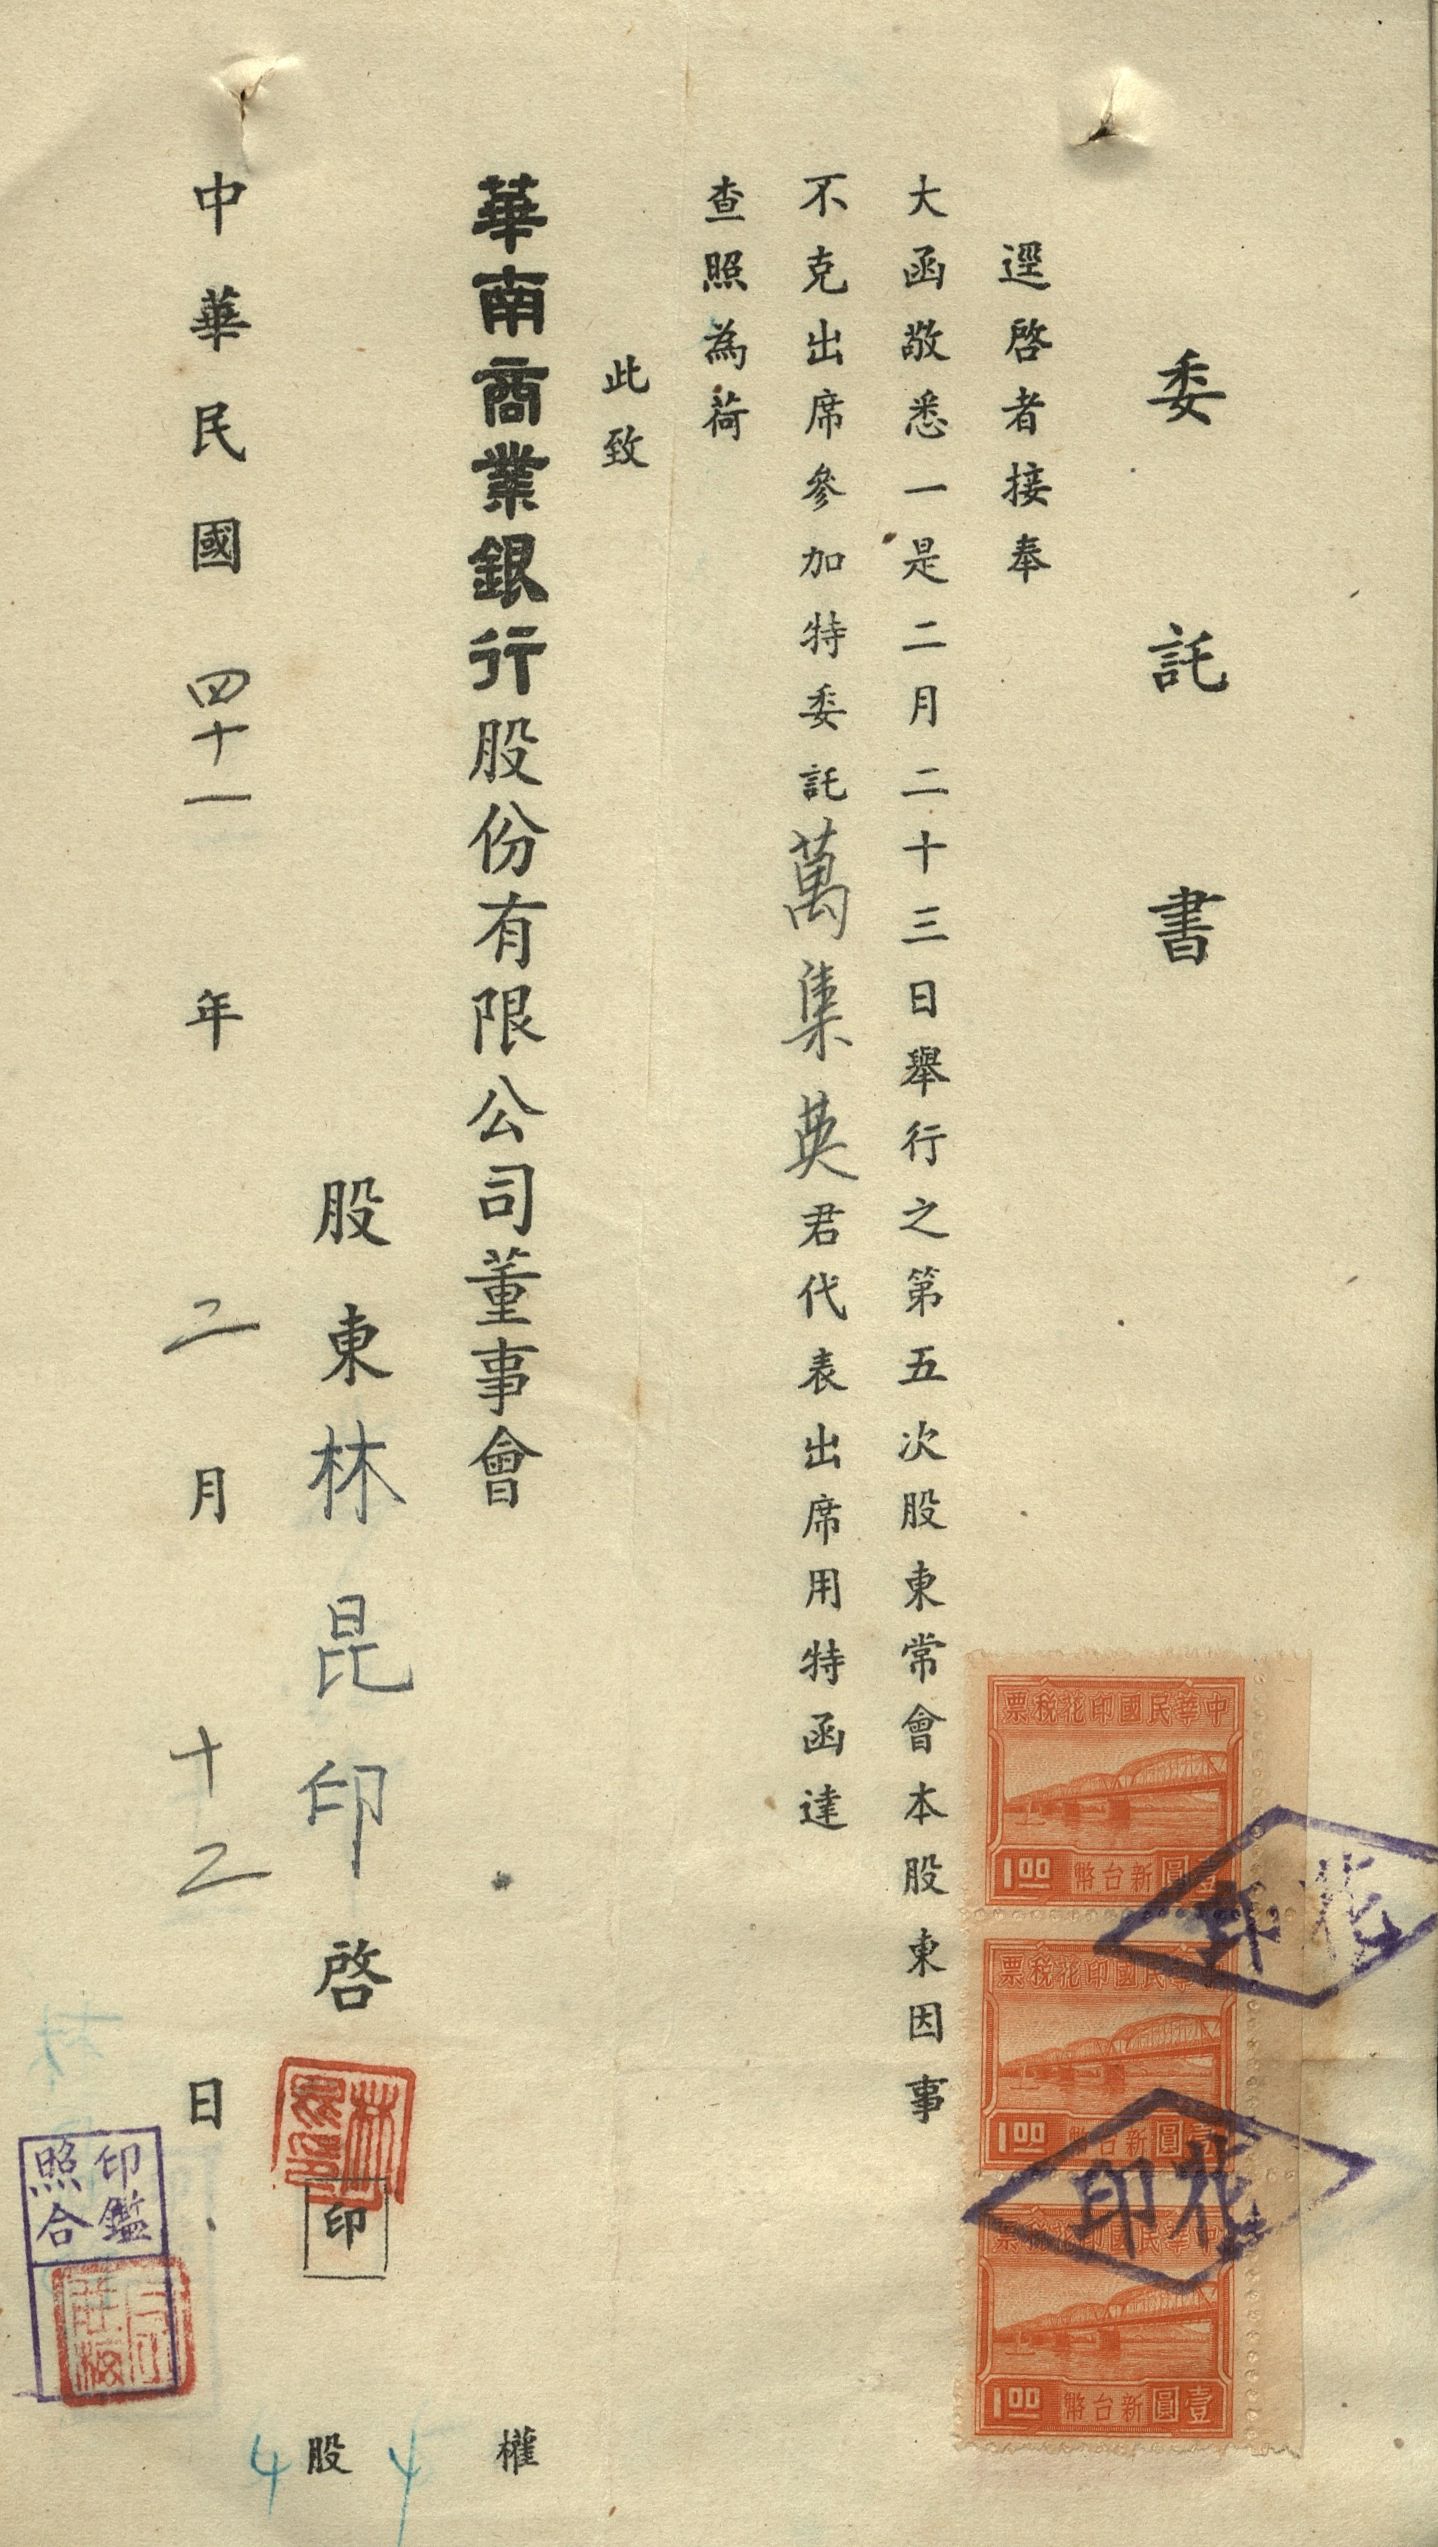 委託書
逕啓者接奉
大函敬悉一是二月二十三日舉行之第五次股東常會本股東因事
不克出席參加特委託萬集英君代表出席用特函達
查照為荷
此致
華南商業銀行股份有限公司董事會
股東林昆印啓
印
中華民國四十一年二月十二日
權
4
股
4
印鑑
照合
中華民國印花稅票
壹圓新台幣
1.00
中華民國印花稅票
壹圓新台幣
1.00
中華民國印花稅票
壹圓新台幣
1.00
花印
花印